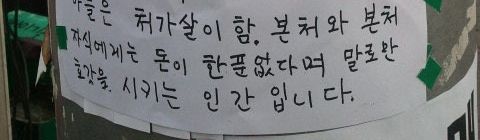 아들은 처가살이 함. 본처와 본처
자식에게는 돈이 한푼없다며 말로만
효갓을 시키는 인간 입니다.